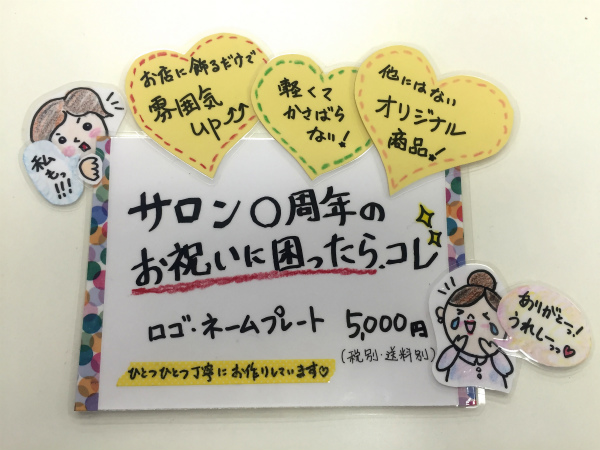 お店に飾るだけで
雰囲気
up⤴⤴
軽くて
かさばら
ない!
他にはない
オリジナル
商品!
私
もっ!!!
サロン〇周年の
お祝いに困ったら、コレ
ロゴ・ネームプレート 5,000円
(税別・送料別)
ひとつひとつ丁寧にお作りしています♡
ありがとーっ!
うれしーっっ♥